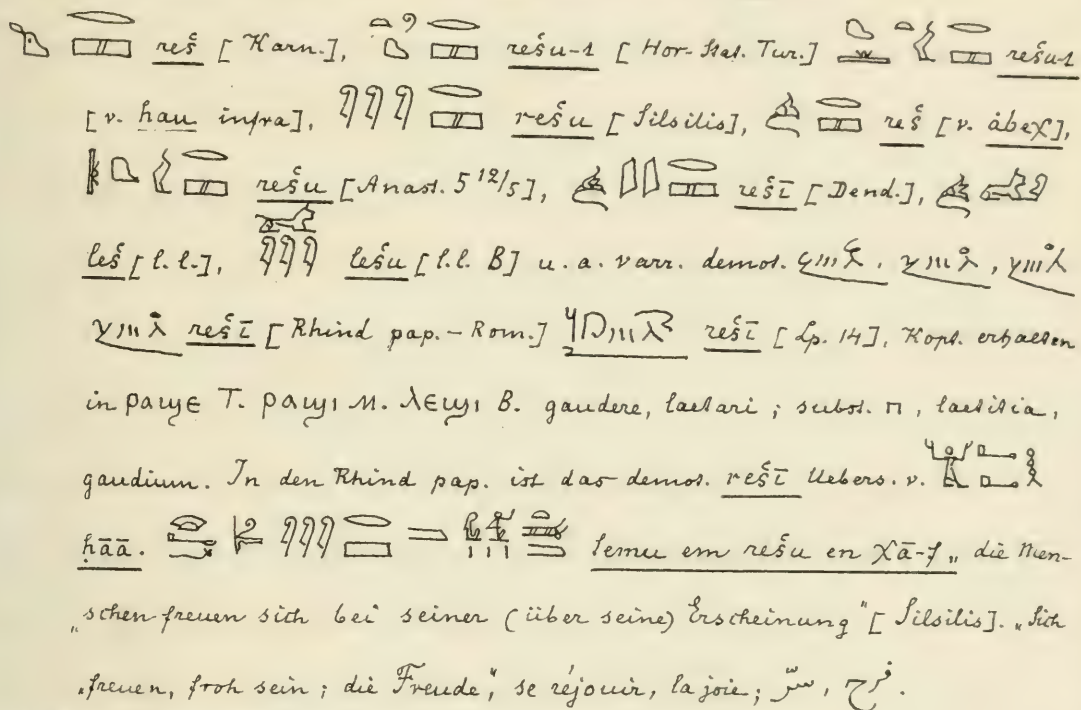 reš [Karn.], rešu-t [Hor-Stat. Tur.] rešu-t
[v. hau infra], rešu [Silsilis], reš [v. ábeχ],
rešu [Anast. 5 12/5], rešī [Dend.],
leš [l. l.], lešu [l. l. B] u. a. varr. demot.
rešī [Rhind pap. - Rom.] rešī [Lp. 14], Kopt. erhalten
in ⲣⲁϣⲉ T. ⲣⲁϣⲓ M. ⲗⲉϣⲓ B. gaudere, laetari; subst. ⲡ, laetitia,
gaudium. In den Rhind pap. ist das demot. rešī Uebers. v.
ḥāā. temu em rešu en χā-f „die Men-
„schen freuen sich bei seiner (über seine) Erscheinung" [Silsilis]. „Sich
„freuen, froh sein; die Freude", se réjouir, la joie; سرّ, فرح.